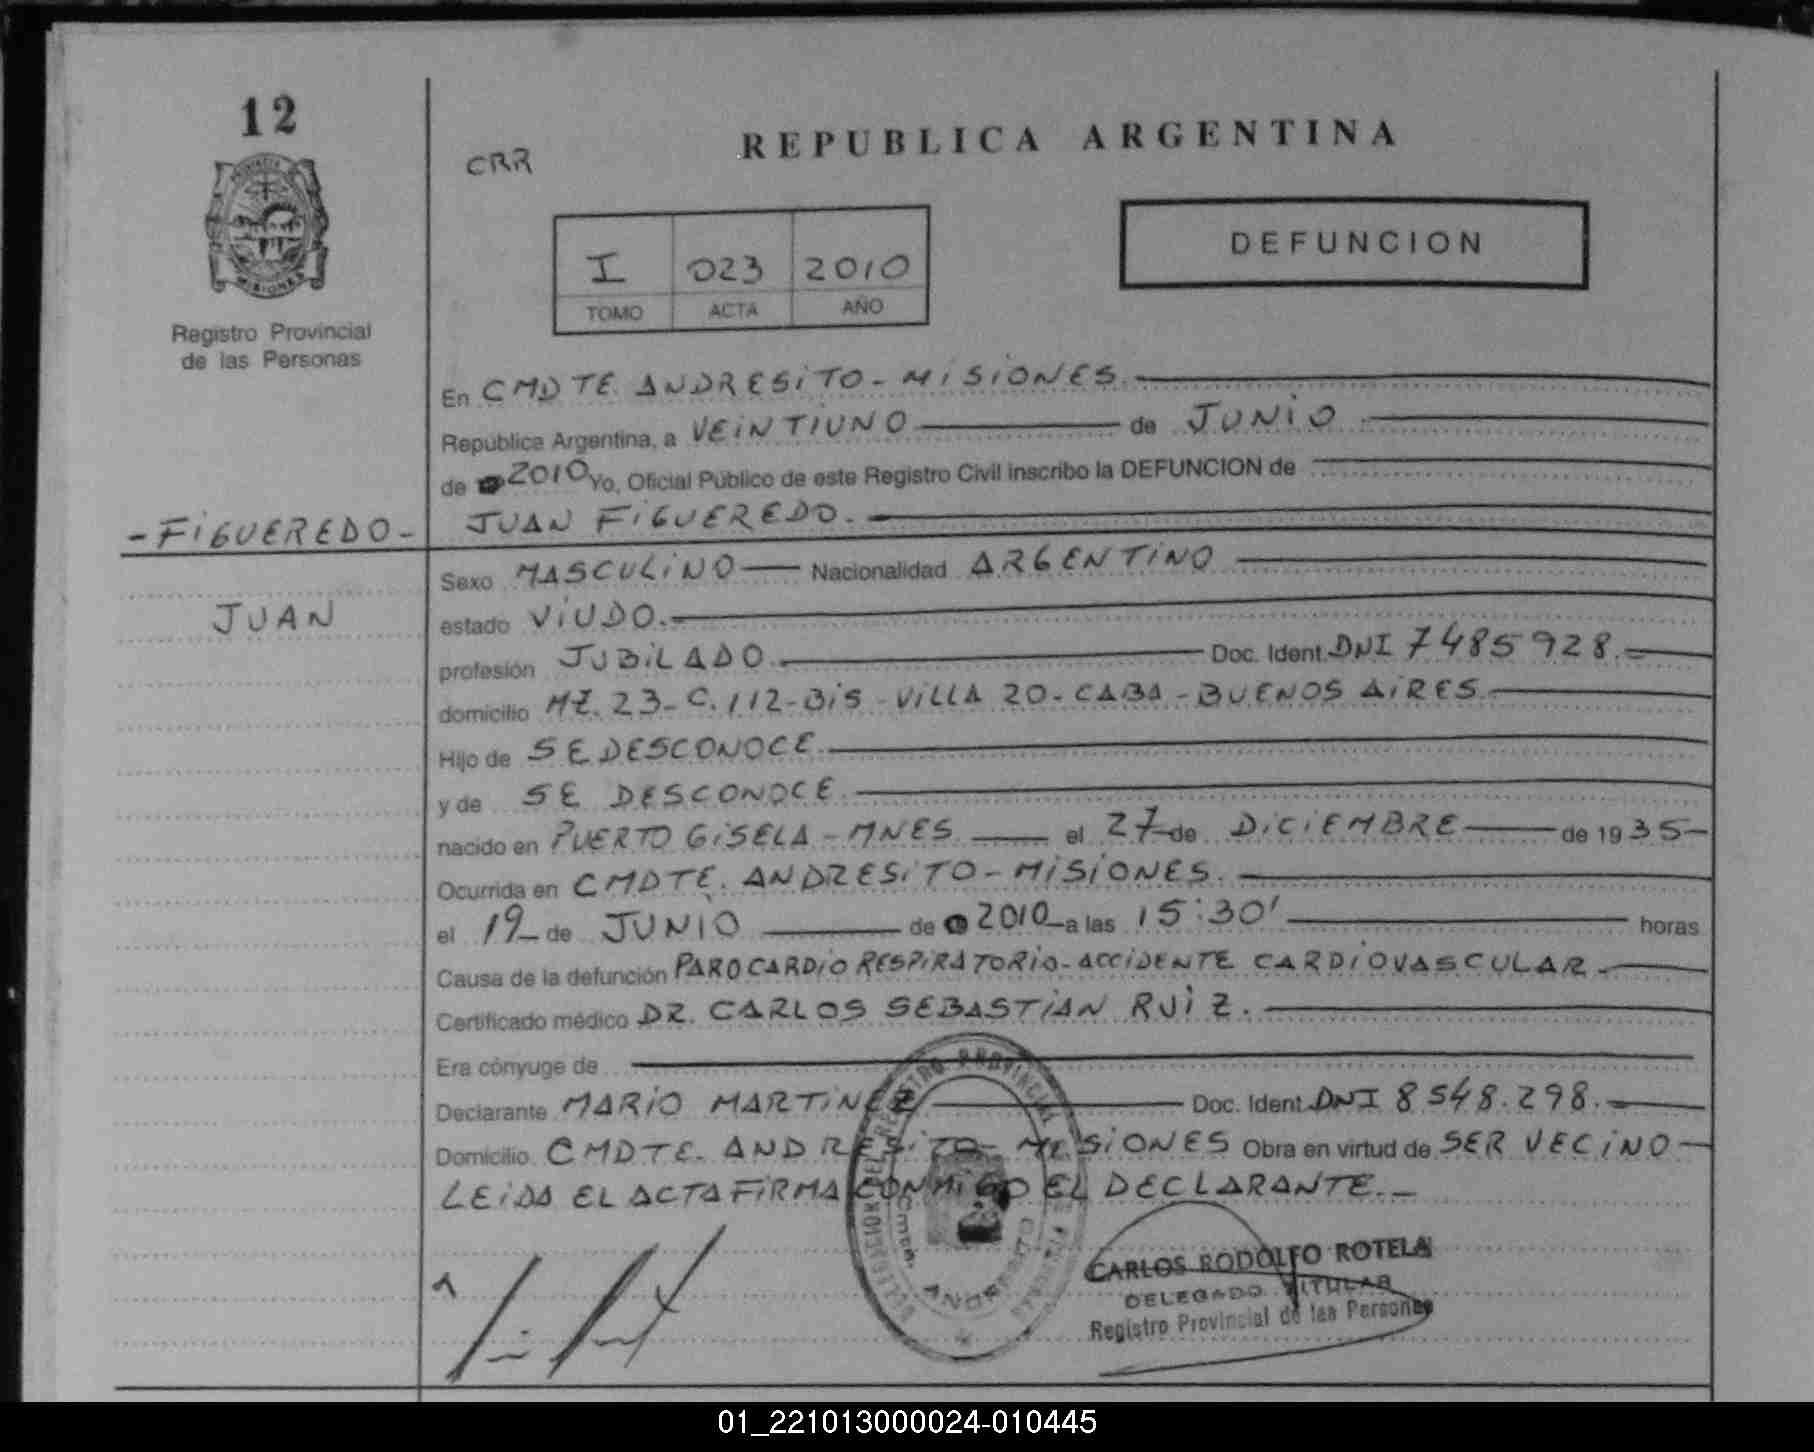 12
PROVINCIA
MISIONES
Registro Provincial
de las Personas
- FIGUEREDO -
JUAN
CRR
REPUBLICA ARGENTINA
I 023 2010
TOMO ACTA AÑO
DEFUNCION
En CMDTE. ANDRESITO - MISIONES.
República Argentina, a VEINTIUNO de JUNIO
de 2010 Yo, Oficial Público de este Registro Civil inscribo la DEFUNCION de
JUAN FIGUEREDO.
Sexo MASCULINO Nacionalidad ARGENTINO
estado VIUDO.
profesión JUBILADO Doc. Ident. DNI 7485928.-
domicilio MZ. 23 - C. 112 - BIS - VILLA 20 - CABA - BUENOS AIRES.
Hijo de SE DESCONOCE.
y de SE DESCONOCE.
nacido en PUERTO GISELA - MNES el 27 de DICIEMBRE de 1935-
Ocurrida en CMDTE. ANDRESITO - MISIONES.
el 19 de JUNIO de 2010 a las 15:30' horas
Causa de la defunción PARO CARDIO RESPIRATORIO - ACCIDENTE CARDIOVASCULAR.
Certificado médico DR. CARLOS SEBASTIAN RUIZ.
Era cónyuge de
Declarante MARIO MARTINEZ Doc. Ident. DNI 8548.298.-
Domicilio CMDTE. ANDRESITO - MISIONES Obra en virtud de SER VECINO
LEIDA EL ACTA FIRMA CONMIGO EL DECLARANTE.-
DELEGACION DEL REGISTRO PROVINCIAL
ANDRESITO
CARLOS RODOLFO ROTELA
DELEGADO TITULAR
Registro Provincial de las Personas
01_221013000024-010445